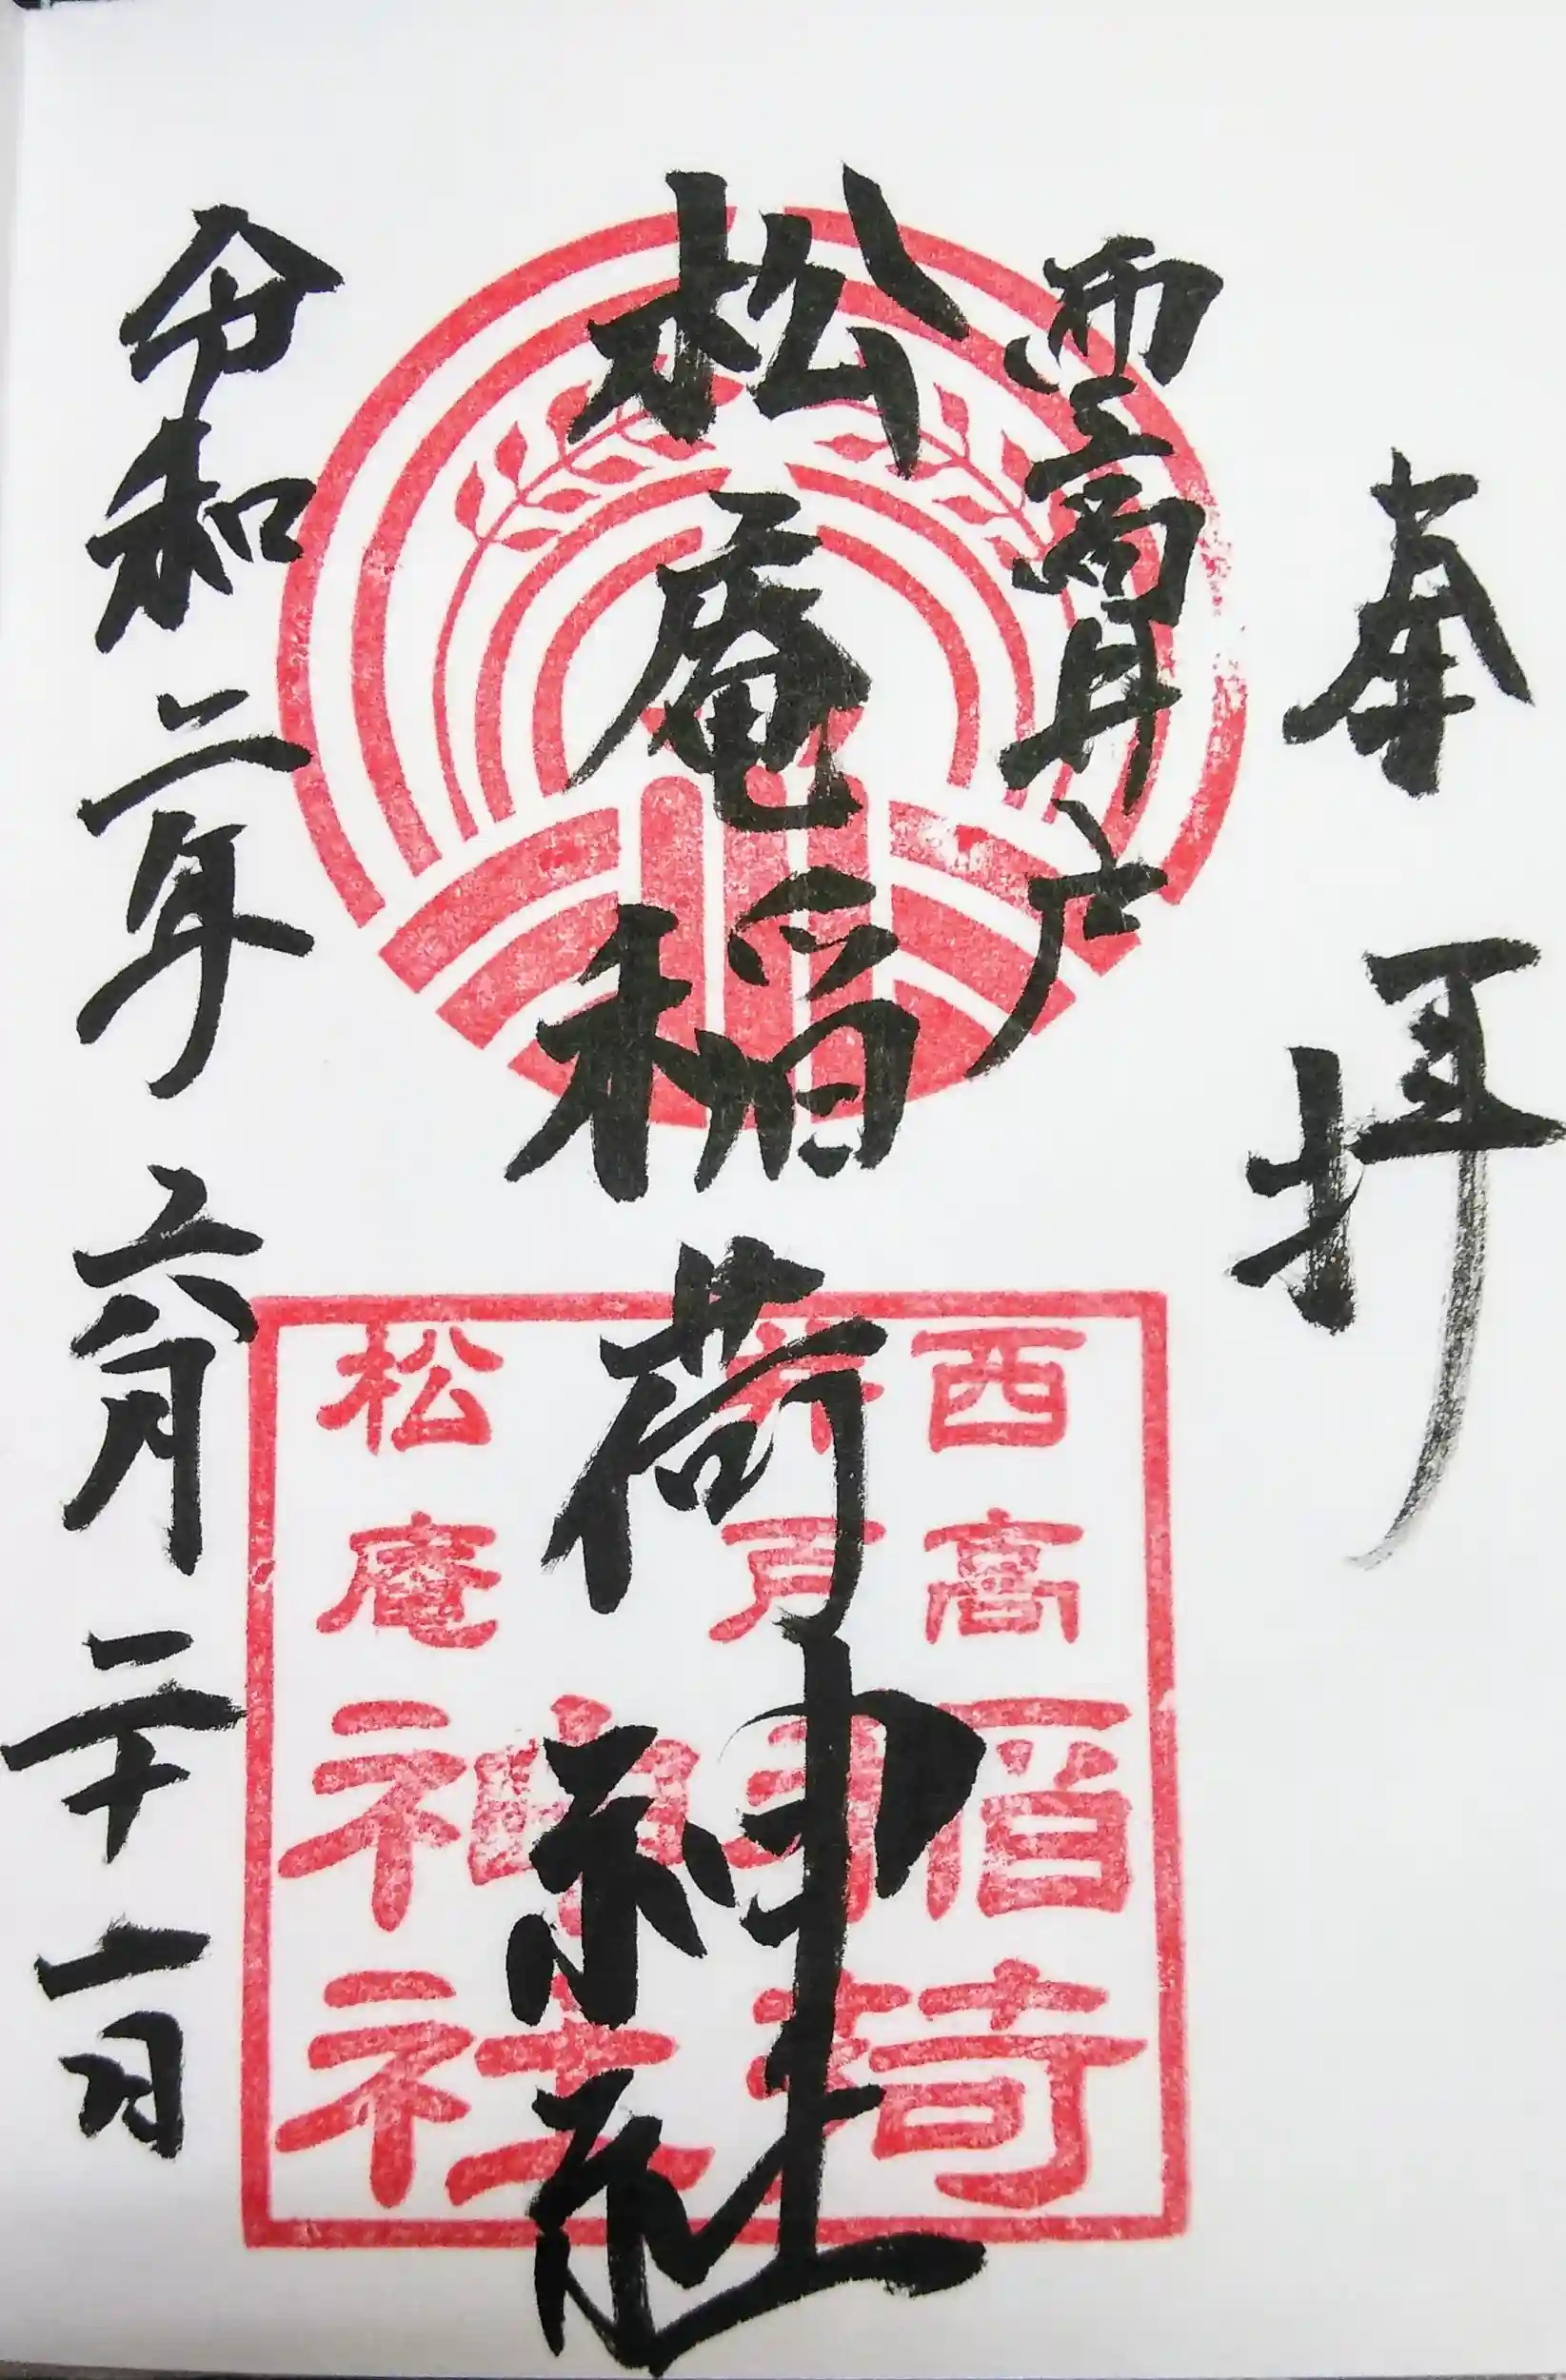 奉拝
西高井戸
松庵稲荷神社
令和二年六月二十一日
西高
井戸
松庵神社